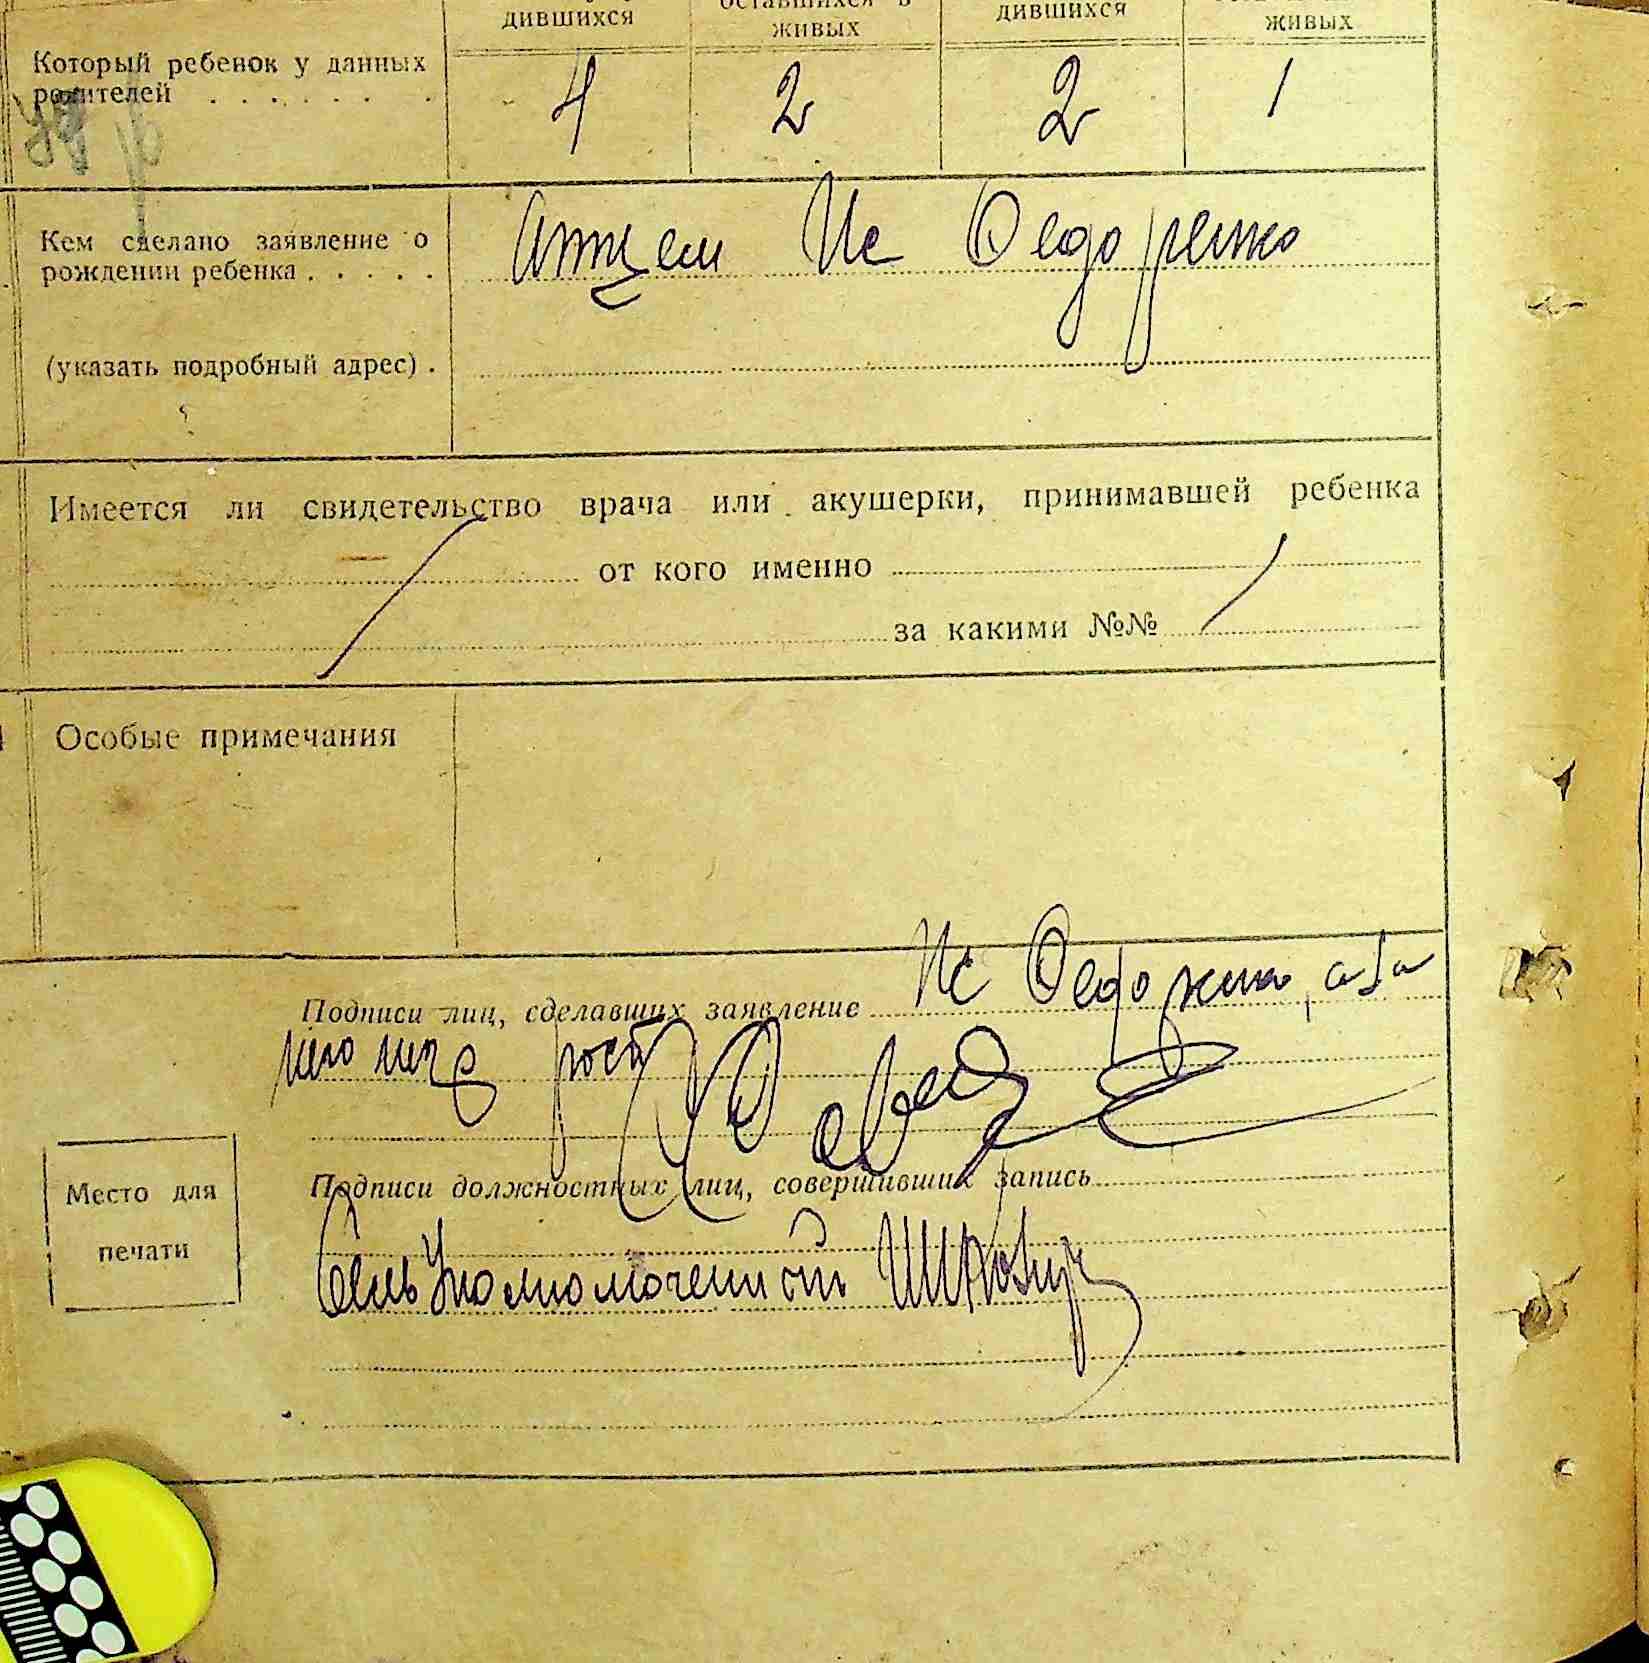 дившихся оставшихся в живых дившихся живых
Который ребенок у данных
родителей 4 2 2 1
Кем сделано заявление о
рождении ребенка Атцем Ис Федоренко
(указать подробный адрес)
Имеется ли свидетельство врача или акушерки, принимавшей ребенка
от кого именно
за какими №№
Особые примечания
Подписи лиц, сделавших заявление Ис Федоренко, а за
него негр рост
Подписи должностных лиц, совершивших запись
Место для
печати
Сель Уполномоченный